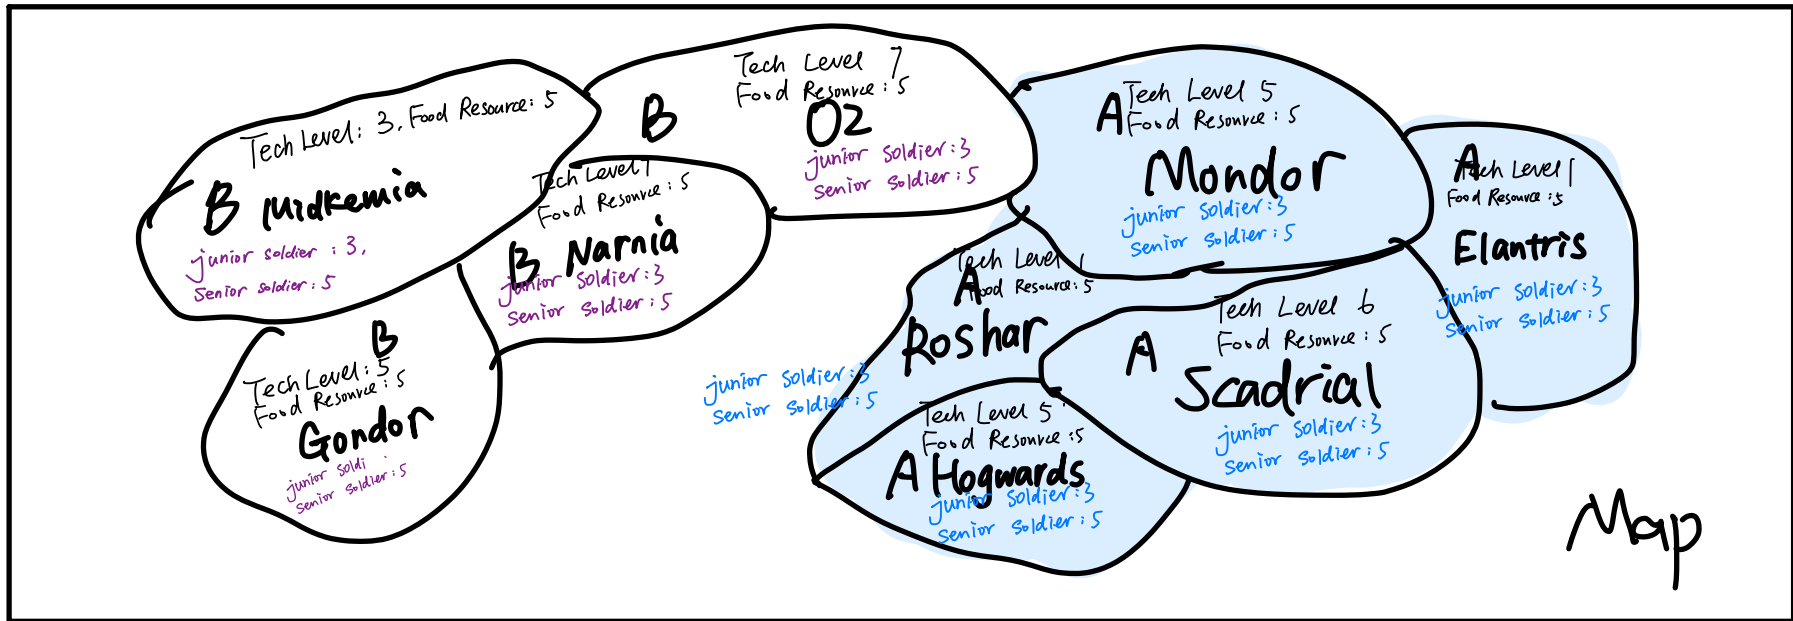 Tech Level: 3, Food Resource: 5
B Midkemia
junior soldier : 3,
senior soldier : 5
Tech Level 7
Food Resource: 5
B
O2
junior soldier:3
senior soldier: 5
Tech Level 1
Food Resource: 5
B Narnia
junior soldier:3
senior soldier: 5
B
Tech Level: 5
Food Resource: 5
Gondor
junior soldi
senior soldier: 5
A
Tech Level 5
Food Resource: 5
Mondor
junior soldier:3
senior soldier: 5
A
Tech Level 1
Food Resource:5
Elantris
junior soldier:3
senior soldier: 5
Tech Level 1
A
Food Resource: 5
Roshar
junior soldier:3
senior soldier: 5
Tech Level 6
Food Resource: 5
A
Scadrial
junior soldier:3
senior soldier: 5
Tech Level 5
Food Resource:5
A Hogwards
junior soldier:3
senior soldier: 5
Map